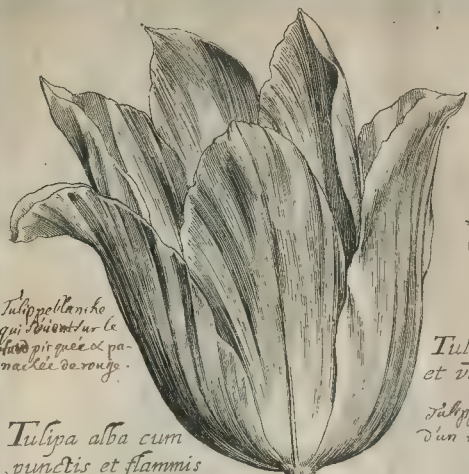 Tulippe blanche
qui sur le
piquée & pa-
nachée de rouge.
Tulipa alba cum
punctis et flammis
Tul
et
Tulipp
d'un